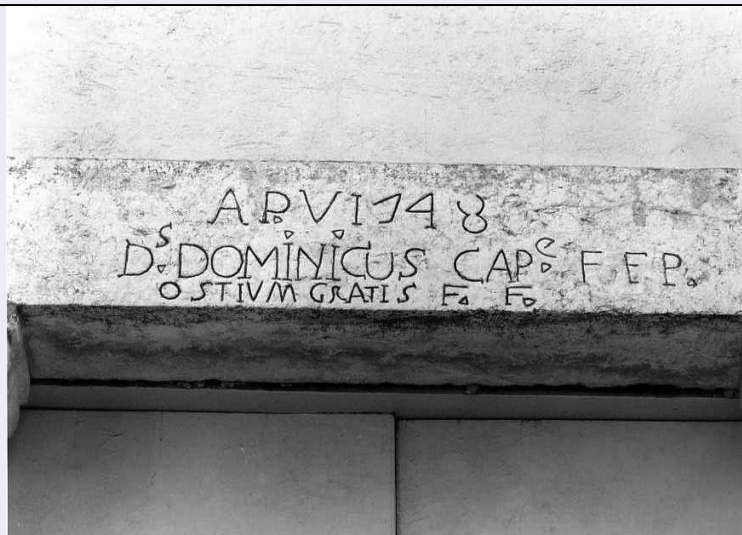 A P. VI 1748
D.S DOMINICUS CAP.e F E P.
OSTIVM GRATIS F. F.